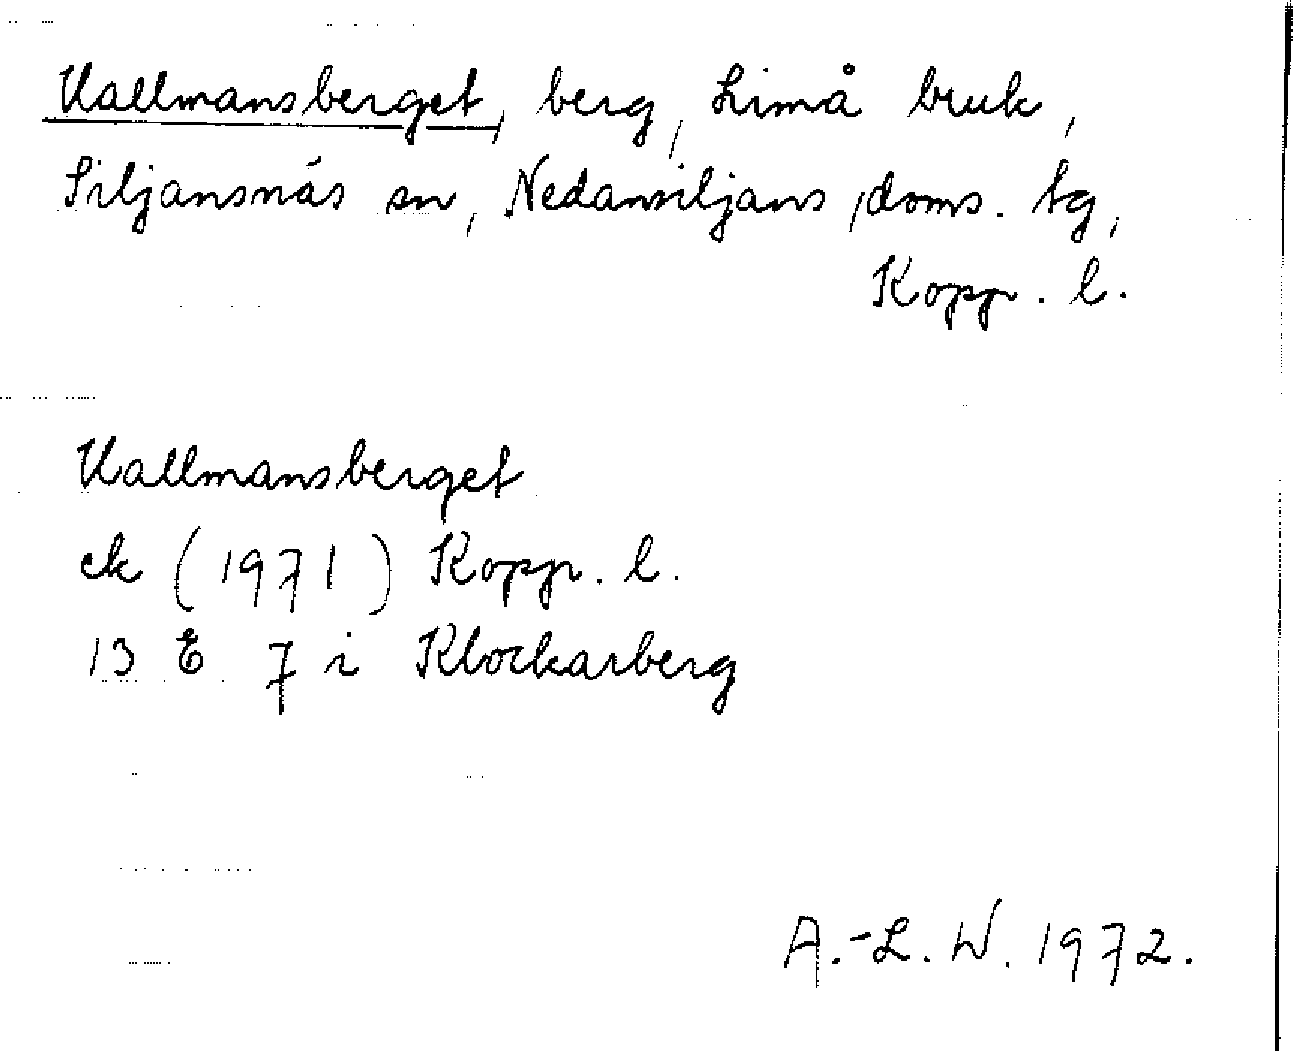 Vallmansberget, berg, Limå bruk,
Siljansnäs sn, Nedansiljans, doms. tg,
Kopp. l.
Vallmansberget
ek (1971) Kopp. l.
13 E 7 i Klockarberg
A.-L. W. 1972.